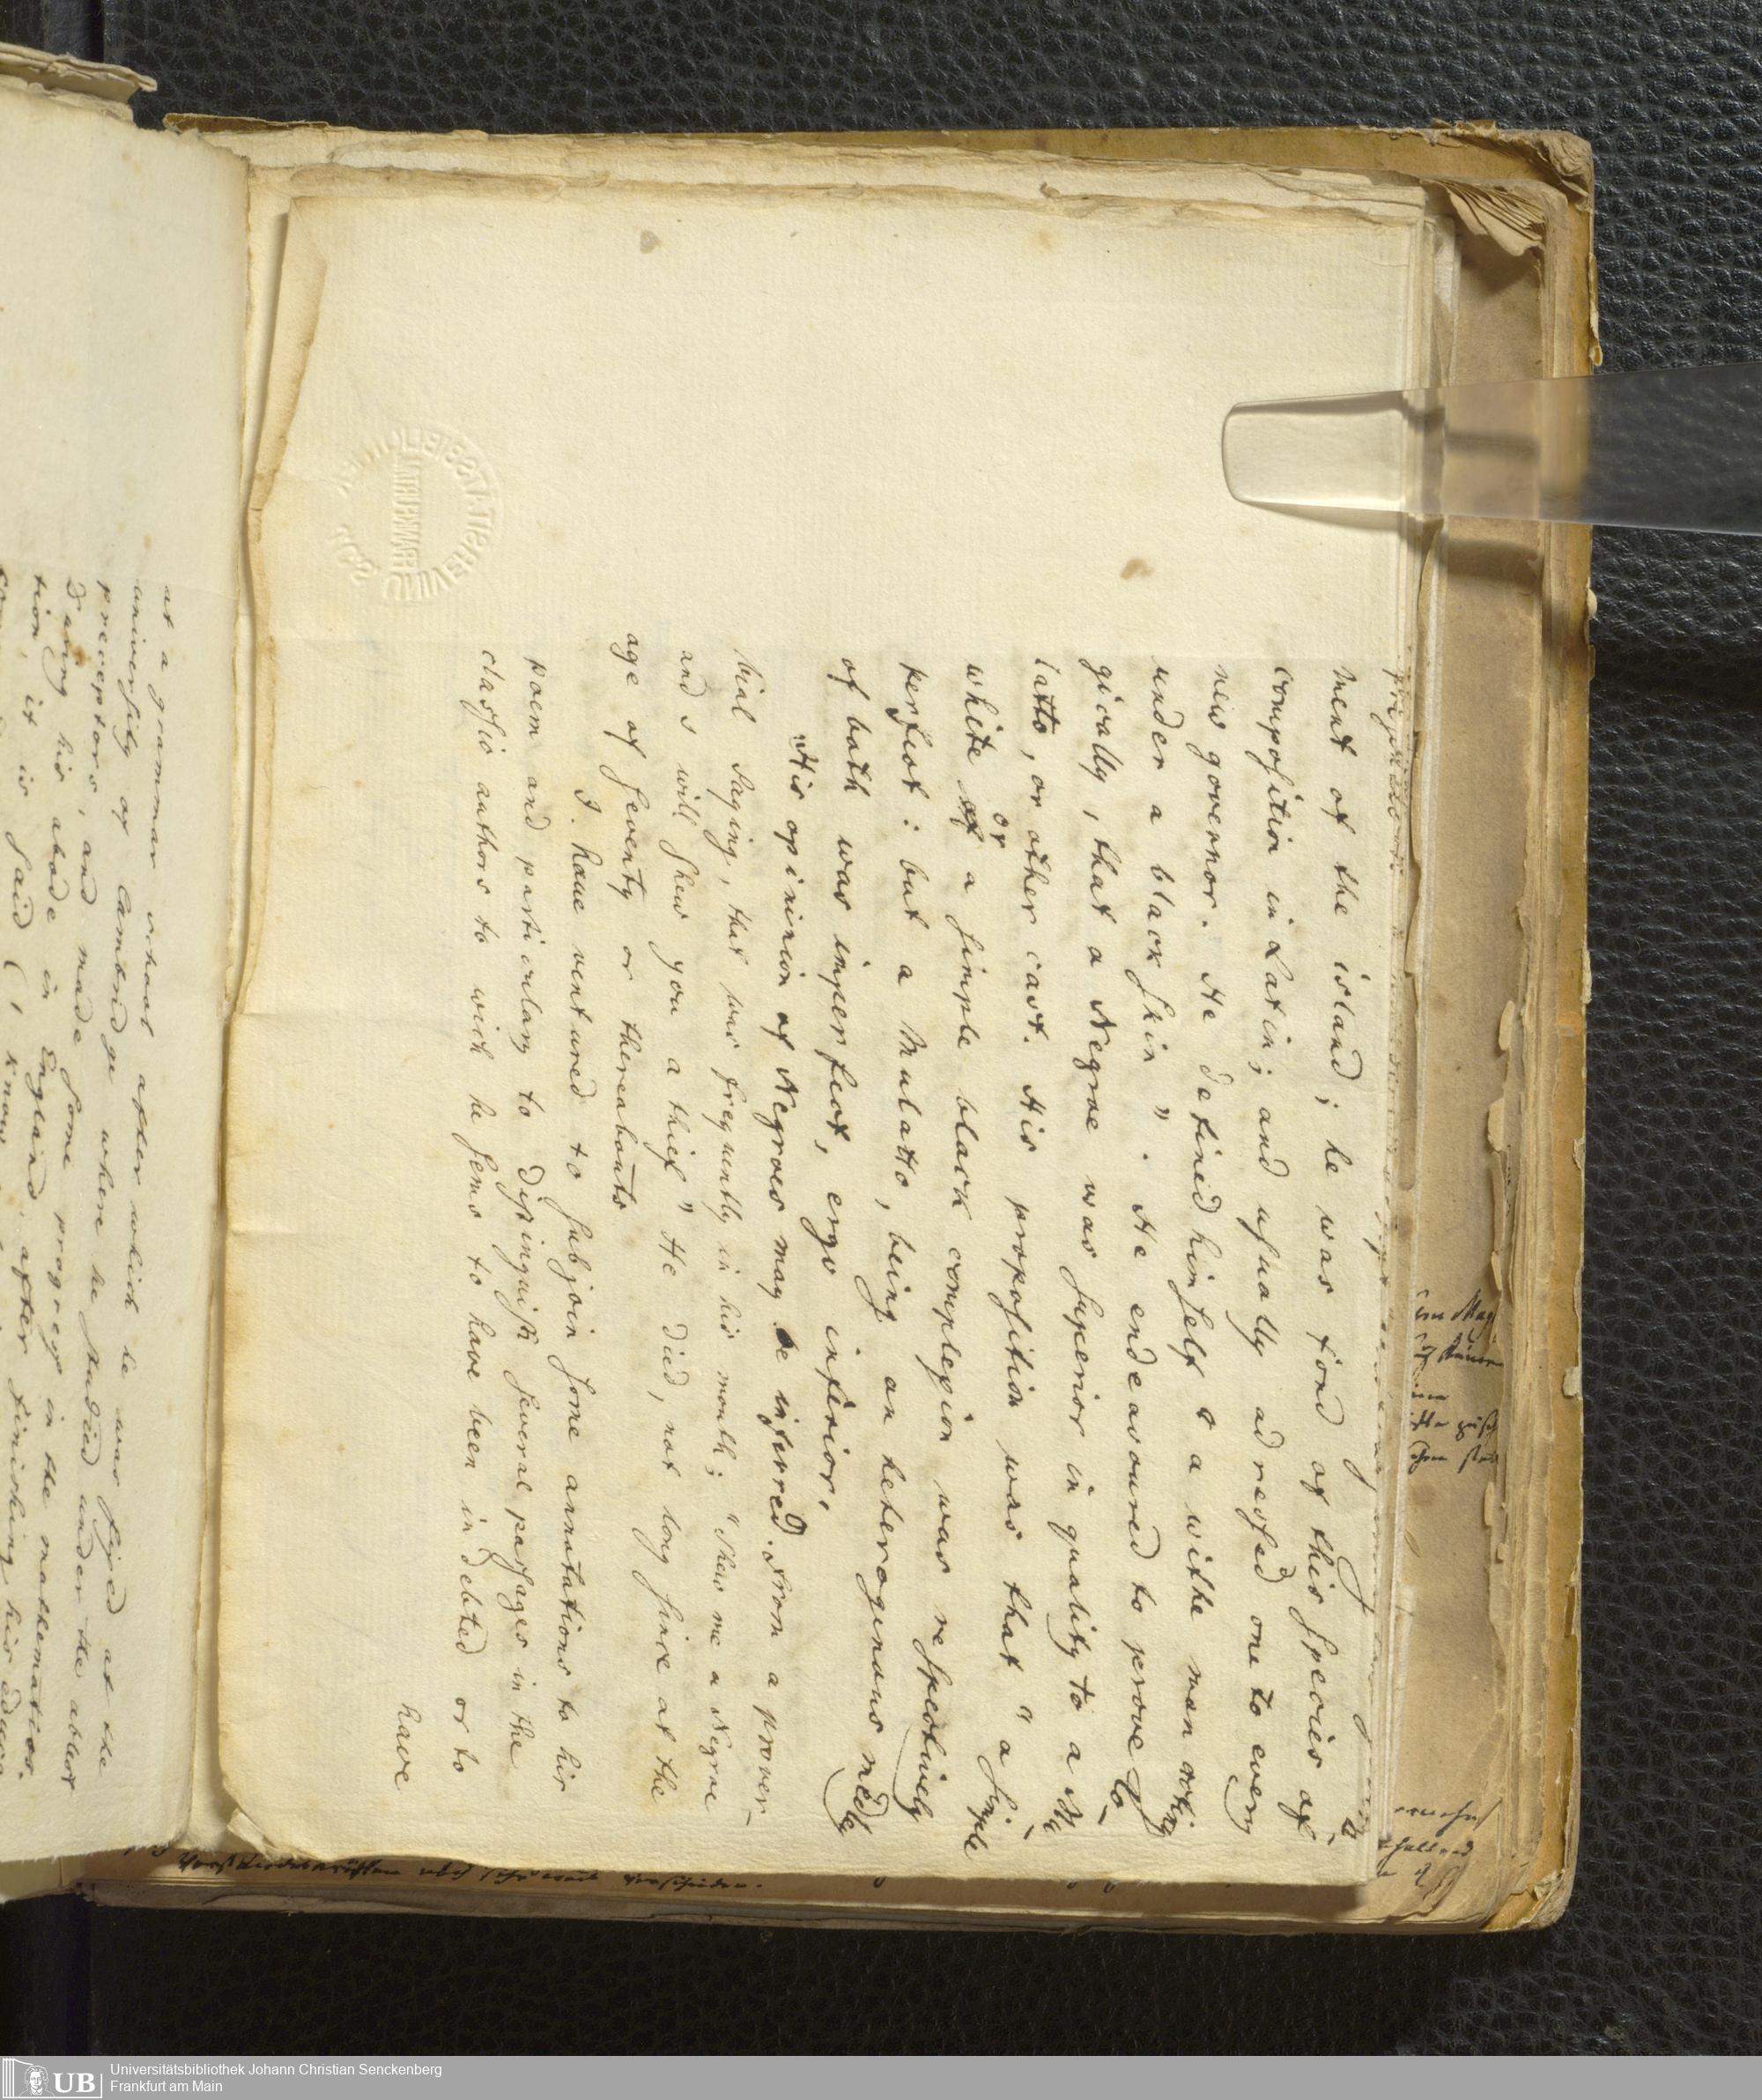 ment of the island; he was fond of this species of
composition in Latin; and usually adressed one to every
new governor. He defined himself s a withe man acking
under a black skin". He endeavoured to prove lo
gically, that a Negroe was superior in quality to a Mu
latto, or other cast. His proposition was that "a simple
white or a simple black complexion was respectively
perfect: but a Mulatto, being an heterogenous medley
of both was imperfect, ergo inferior.
His opinion of Negroes may be inferred from a prover
bial saying, that was frequently in his mouth; "Shew me a Negroe
and s will shew you a thief" He died, not long since at the
age of seventy or thereabouts
I. have ventured to subjoin some annotations to his
poem and particulary to distinguish several passages in the
classic authors to wich he sems to have been indebted or to
have
at a grammar school after which he was fixed at the
university of Cambridge where he studied under the ablest
preceptors, and made some progress in the mathematics.
During his abode in England, after finishing his educa
tion, it is said (I know
Universitätsbibliothek Johann Christian Senckenberg
Frankfurt am Main
UB